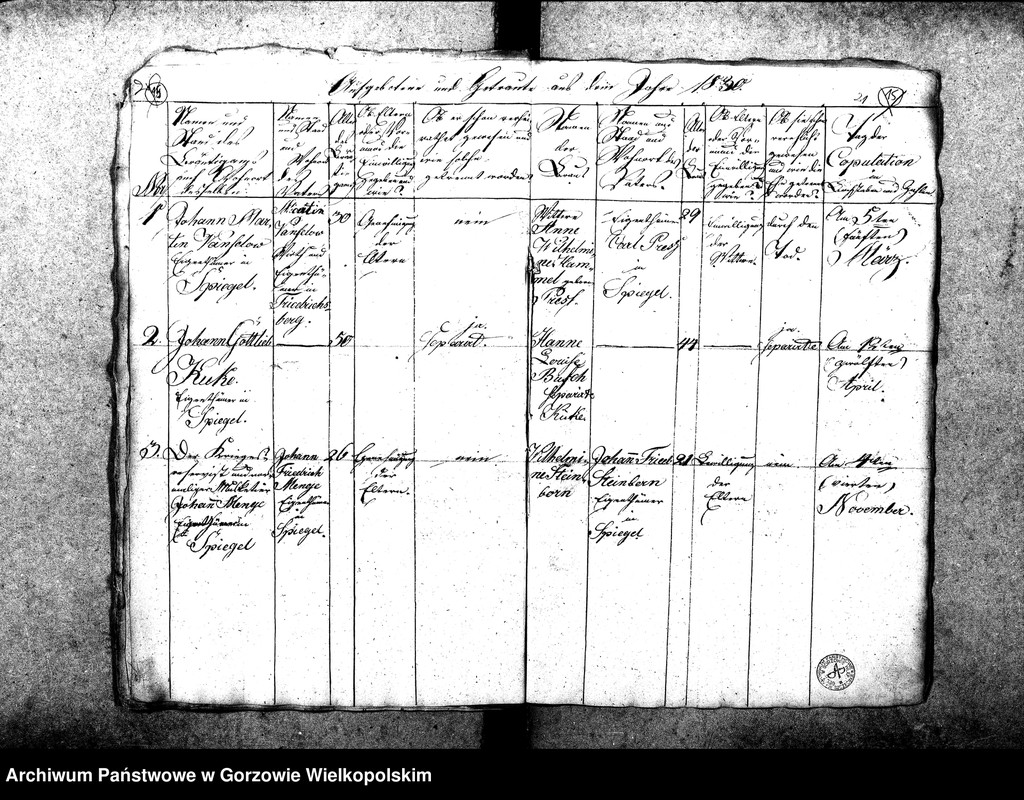 Aufgebotene und Getraute aus dem Jahre 1830
15
21 15
No
Namen und
Stand des
Bräutigams
auch Wohnort
desselben.
Namen
und Stand
und
Wohnort
des
Vaters.
Alter
des
Bräu-
tigams
Ob Eltern
oder Vor-
mund die
Einwilligung
gegeben und
wie?
Ob er schon verhei-
rathet gewesen und
wie solche
getrennt worden
Namen
der
Braut
Namen und
Stand und
Wohnort des
Vaters.
Alter
der
Braut
Ob Eltern
oder Vor-
mund die
Einwilligung
gegeben
wie?
Ob sie schon
verheirathet
gewesen
und wie die
Ehe getrennt
worden?
Tag der
Copulation
in
Buchstaben und Ziffern
1.
Johann Mar-
tin Wanselow
Eigenthümer in
Spiegel.
Martin
Wanselow
Wirth und
Eigenthü-
mer in
Friedrichs-
berg.
30
Genehmigung
der
Eltern
nein
Wittwe
Anne
Wilhelmi-
ne Ham-
mel geborne
Press.
Eigenthümer
Carl Press
in
Spiegel.
29
Einwilligung
der
Mutter.
durch den
Tod.
Am 5ten
(fünften)
März.
2.
Johann Gottlieb
Kuke.
Eigenthümer in
Spiegel.
50
ja.
Separirt.
Hanne
Louise
Busch
Separirte
Kuke.
44
ja.
separirte
Am 12ten
(zwölften)
April.
3.
Der Krieges-
reservist und
Musketier
Johann Menge
Eigenthümer in
Spiegel
Johann
Friedrich
Menge
Eigenthümer
in
Spiegel.
26
Genehmigung
der
Eltern.
nein
Wilhelmi-
ne Stein-
born
Johann Fried.
Steinborn
Eigenthümer
in
Spiegel
21
Bewilligung
der
Eltern
nein
Am 4ten
(vierten)
November.
Archiwum Państwowe w Gorzowie Wielkopolskim